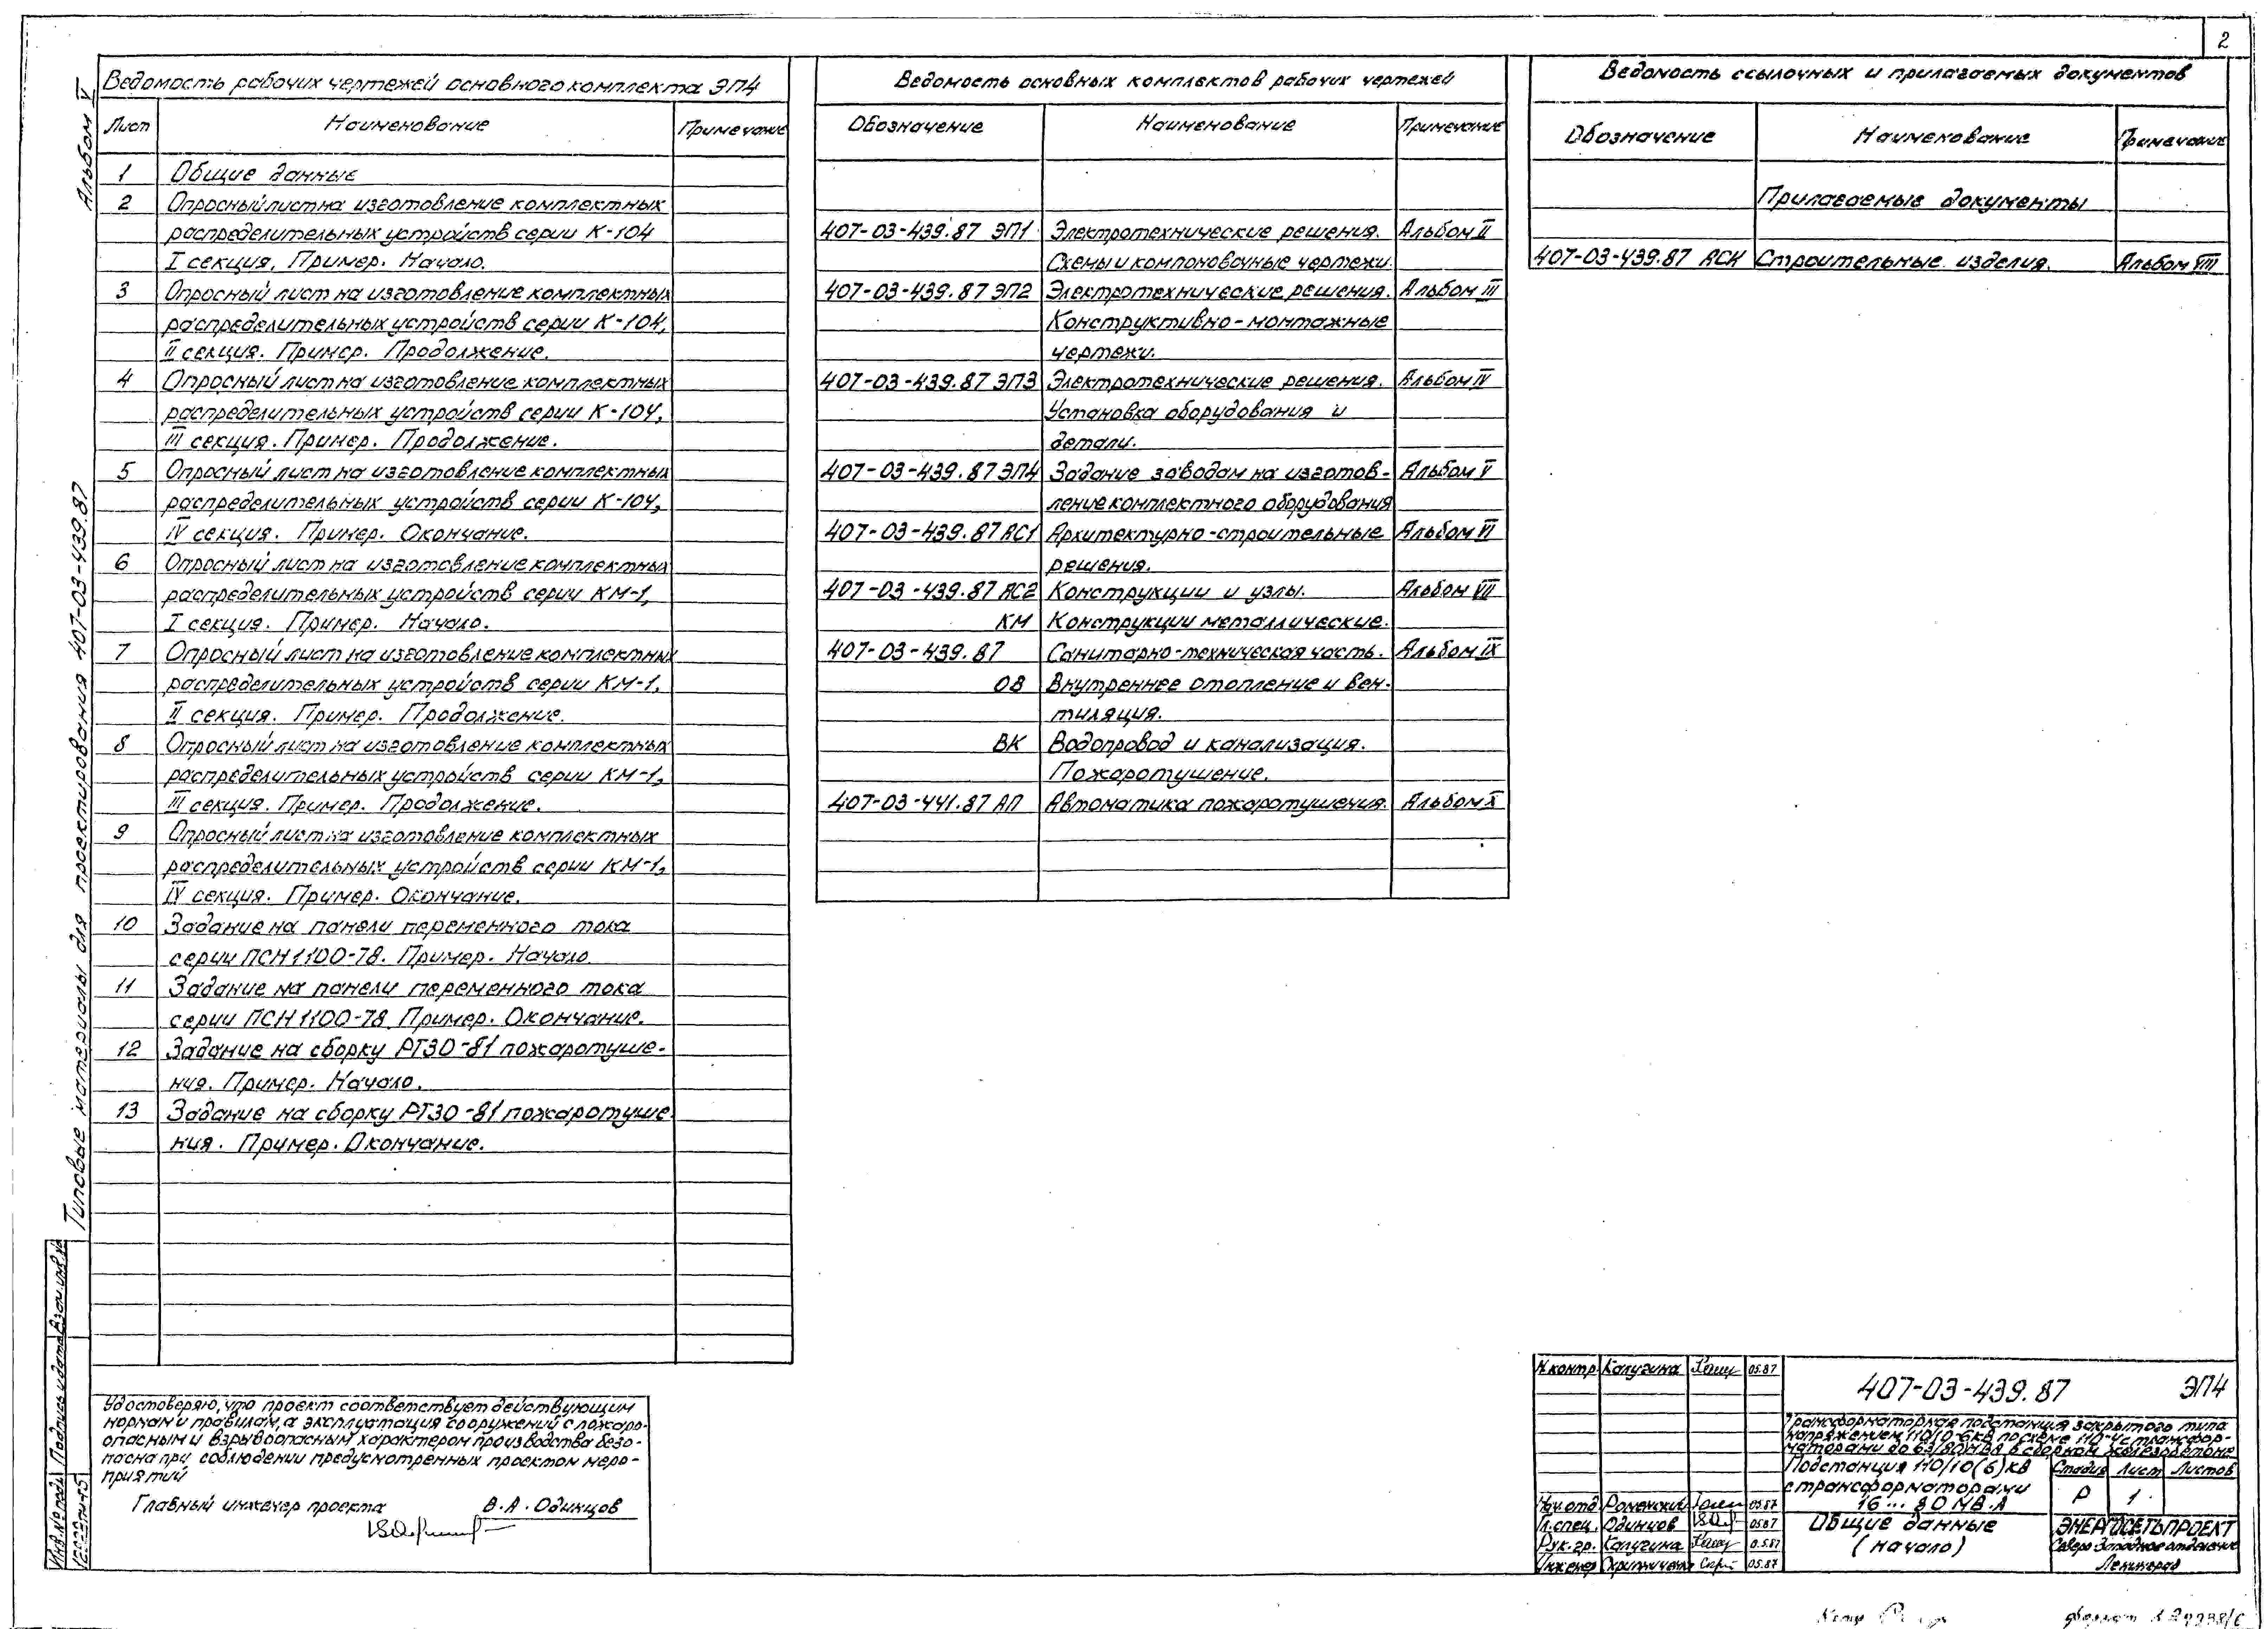 2
Альбом V
Типовые материалы для проектирования 407-03-439.87
Ведомость рабочих чертежей основного комплекта ЭП4
Лист Наименование Примечание
1 Общие данные
2 Опросный лист на изготовление комплектных
распределительных устройств серии К-104
I секция. Пример. Начало.
3 Опросный лист на изготовление комплектных
распределительных устройств серии К-104,
II секция. Пример. Продолжение.
4 Опросный лист на изготовление комплектных
распределительных устройств серии К-104,
III секция. Пример. Продолжение.
5 Опросный лист на изготовление комплектных
распределительных устройств серии К-104,
IV секция. Пример. Окончание.
6 Опросный лист на изготовление комплектных
распределительных устройств серии КМ-1,
I секция. Пример. Начало.
7 Опросный лист на изготовление комплектных
распределительных устройств серии КМ-1,
II секция. Пример. Продолжение.
8 Опросный лист на изготовление комплектных
распределительных устройств серии КМ-1,
III секция. Пример. Продолжение.
9 Опросный лист на изготовление комплектных
распределительных устройств серии КМ-1,
IV секция. Пример. Окончание.
10 Задание на панели переменного тока
серии ПСН1100-78. Пример. Начало.
11 Задание на панели переменного тока
серии ПСН1100-78. Пример. Окончание.
12 Задание на сборку РТЗО-81 пожаротуше-
ния. Пример. Начало.
13 Задание на сборку РТЗО-81 пожаротуше-
ния. Пример. Окончание.
Ведомость основных комплектов рабочих чертежей
Обозначение Наименование Примечание
407-03-439.87 ЭП1 Электротехнические решения. Альбом II
Схемы и компоновочные чертежи.
407-03-439.87 ЭП2 Электротехнические решения. Альбом III
Конструктивно-монтажные
чертежи.
407-03-439.87 ЭП3 Электротехнические решения. Альбом IV
Установка оборудования и
детали.
407-03-439.87 ЭП4 Задание заводам на изготов- Альбом V
ление комплектного оборудования
407-03-439.87 АС1 Архитектурно-строительные Альбом VI
решения.
407-03-439.87 АС2 Конструкции и узлы. Альбом VII
КМ Конструкции металлические.
407-03-439.87 Санитарно-техническая часть. Альбом IX
ОВ Внутреннее отопление и вен-
тиляция.
ВК Водопровод и канализация.
Пожаротушение.
407-03-441.87 АП Автоматика пожаротушения. Альбом X
Ведомость ссылочных и прилагаемых документов
Обозначение Наименование Примечание
Прилагаемые документы
407-03-439.87 АСИ Строительные изделия. Альбом VIII
Удостоверяю, что проект соответствует действующим
нормам и правилам, а эксплуатация сооружений с пожаро-
опасным и взрывоопасным характером производства безо-
пасна при соблюдении предусмотренных проектом меро-
приятий
Главный инженер проекта В.А. Одинцов
Инв.№ подл. Подпись и дата Взам.инв.№
Н.контр. Калугина 05.87
407-03-439.87 ЭП4
Трансформаторная подстанция закрытого типа
напряжением 110/10-6кВ по схеме 110-4 с трансфор-
маторами до 63/80МВА в сборном железобетоне
Подстанция 110/10(6)кВ
с трансформаторами
16...80 МВ.А
Стадия Лист Листов
Р 1
Нач.отд. Роменский 05.87
Гл.спец. Одинцов 05.87
Рук.гр. Калугина 05.87
Инженер 05.87
Общие данные
(начало)
ЭНЕРГОСЕТЬПРОЕКТ
Северо-Западное отделение
Ленинград
формат